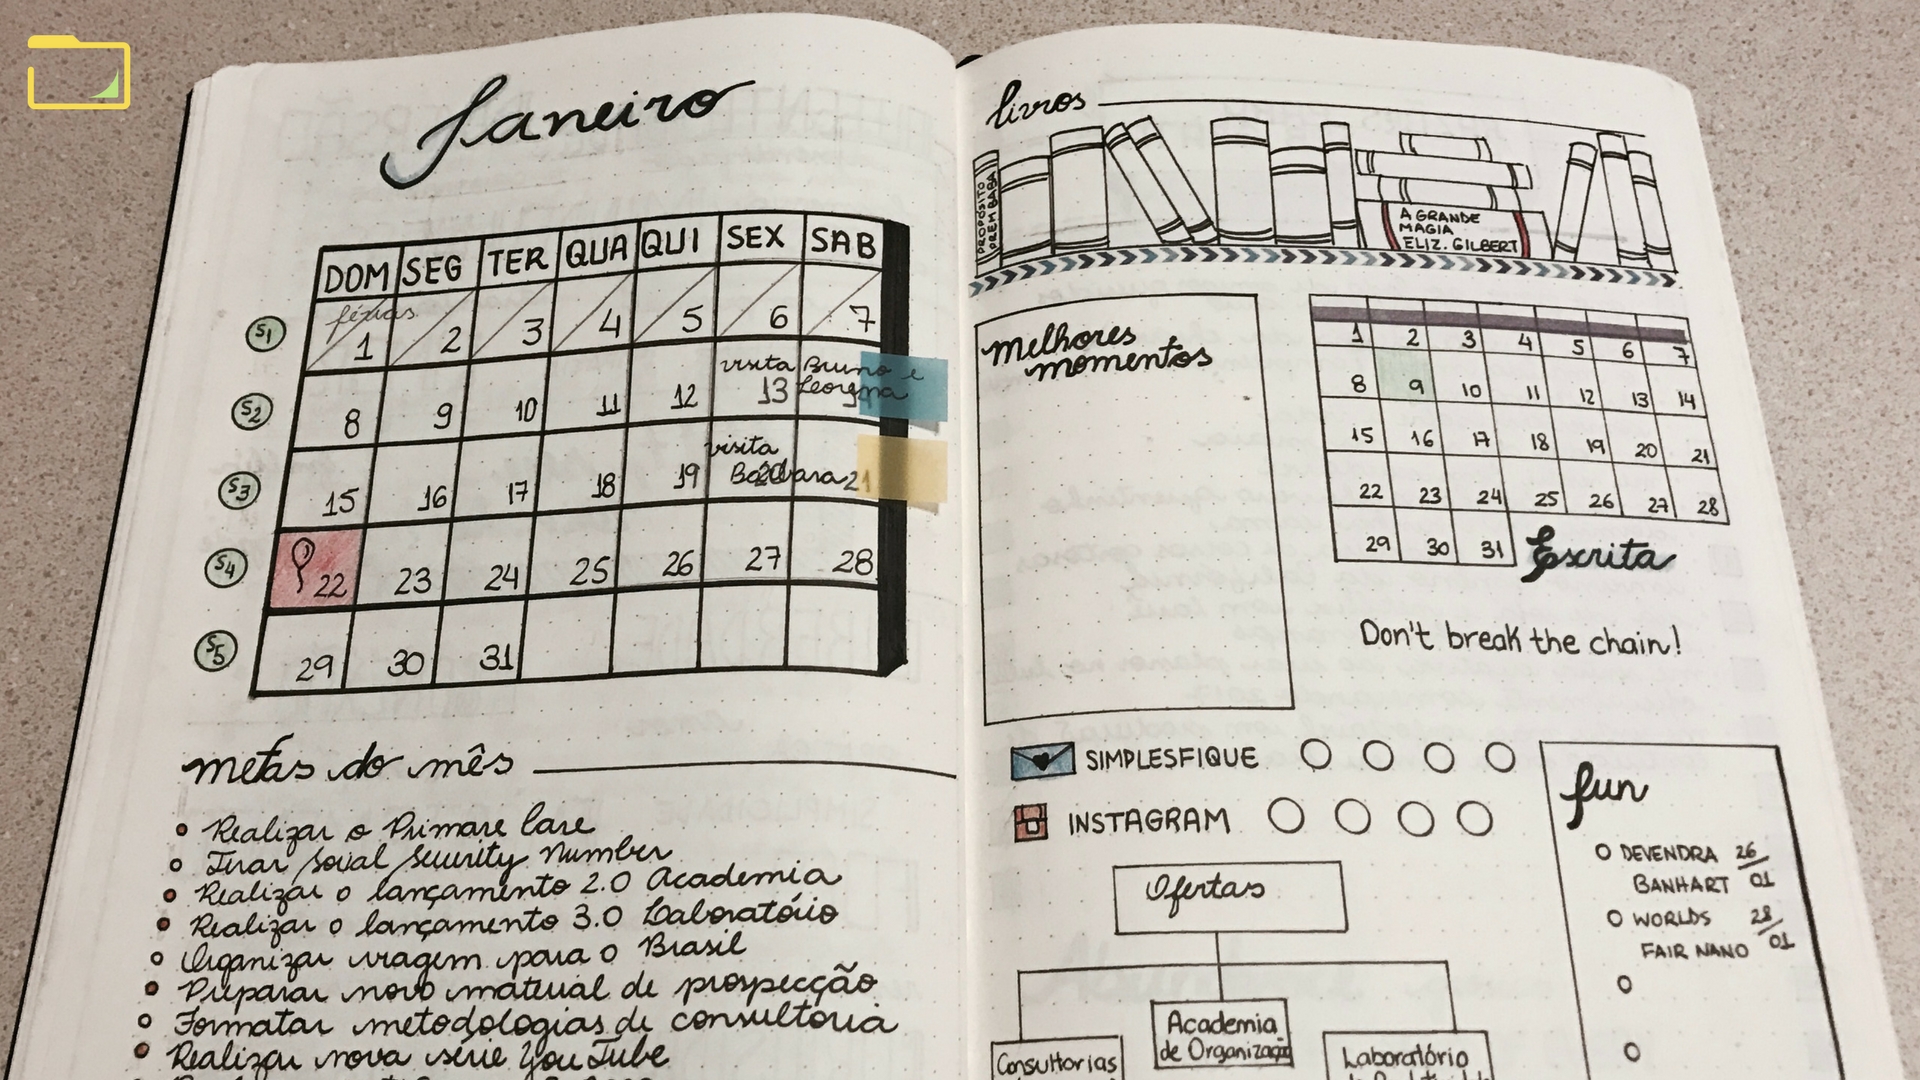 Janeiro
DOM SEG TER QUA QUI SEX SAB
férias
S1 1 2 3 4 5 6 7
visita Bruno e
Leorgna
S2 8 9 10 11 12 13
visita
Barbara
S3 15 16 17 18 19 20 21
S4 22 23 24 25 26 27 28
S5 29 30 31
metas do mês
Realizar o Primare lare
Tirar Social Security Number
Realizar o lançamento 2.0 Academia
Realizar o lançamento 3.0 Laboratório
Organizar viagem para o Brasil
Preparar novo material de prospecção
Formatar metodologias de consultoria
Realizar nova série YouTube
livros
PROPÓSITO
PREM BABA
A GRANDE
MAGIA
ELIZ. GILBERT
melhores
momentos
1 2 3 4 5 6 7
8 9 10 11 12 13 14
15 16 17 18 19 20 21
22 23 24 25 26 27 28
29 30 31
Escrita
Don't break the chain!
SIMPLESFIQUE
INSTAGRAM
Ofertas
Consultorias
Academia
de Organização
Laboratório
fun
DEVENDRA 26/01
BANHART
WORLDS 28/01
FAIR NANO